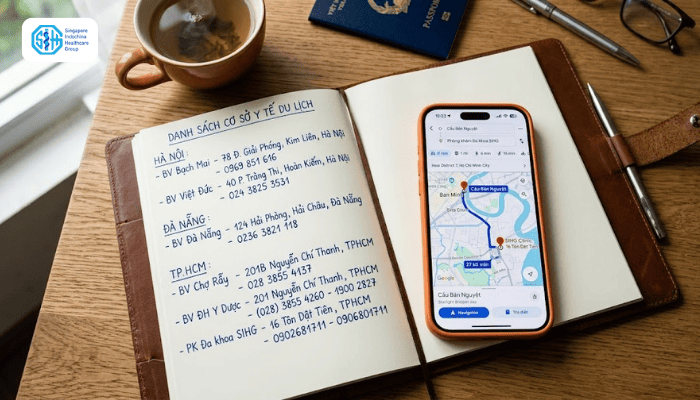 SIHG
Singapore
Indochina
Healthcare
Group
PASSPORT
DANH SÁCH CƠ SỞ Y TẾ DU LỊCH
HÀ NỘI:
- BV Bạch Mai - 78 Đ. Giải Phóng, Kim Liên, Hà Nội
- 0969 851 616
- BV Việt Đức - 40 P. Tràng Thi, Hoàn Kiếm, Hà Nội
- 024 3825 3531
ĐÀ NẴNG:
- BV Đà Nẵng - 124 Hải Phòng, Hải Châu, Đà Nẵng
- 0236 3821 118
TP.HCM:
- BV Chợ Rẫy - 201B Nguyễn Chí Thanh, TPHCM
- 028 3855 4137
- BV ĐH Y Dược - 201 Nguyễn Chí Thanh, TPHCM
- (028) 3855 4260 - 1900 2827
- PK Đa khoa SIHG - 16 Tôn Dật Tiên, TPHCM
- 0902681711 - 0906801711
Cầu Bán Nguyệt
Phòng khám Đa Khoa SIHG
New District 7, Hồ Chí Minh City
Cầu Bán Nguyệt
SIHG Clinic
Google
Cầu Bán Nguyệt
Navigation